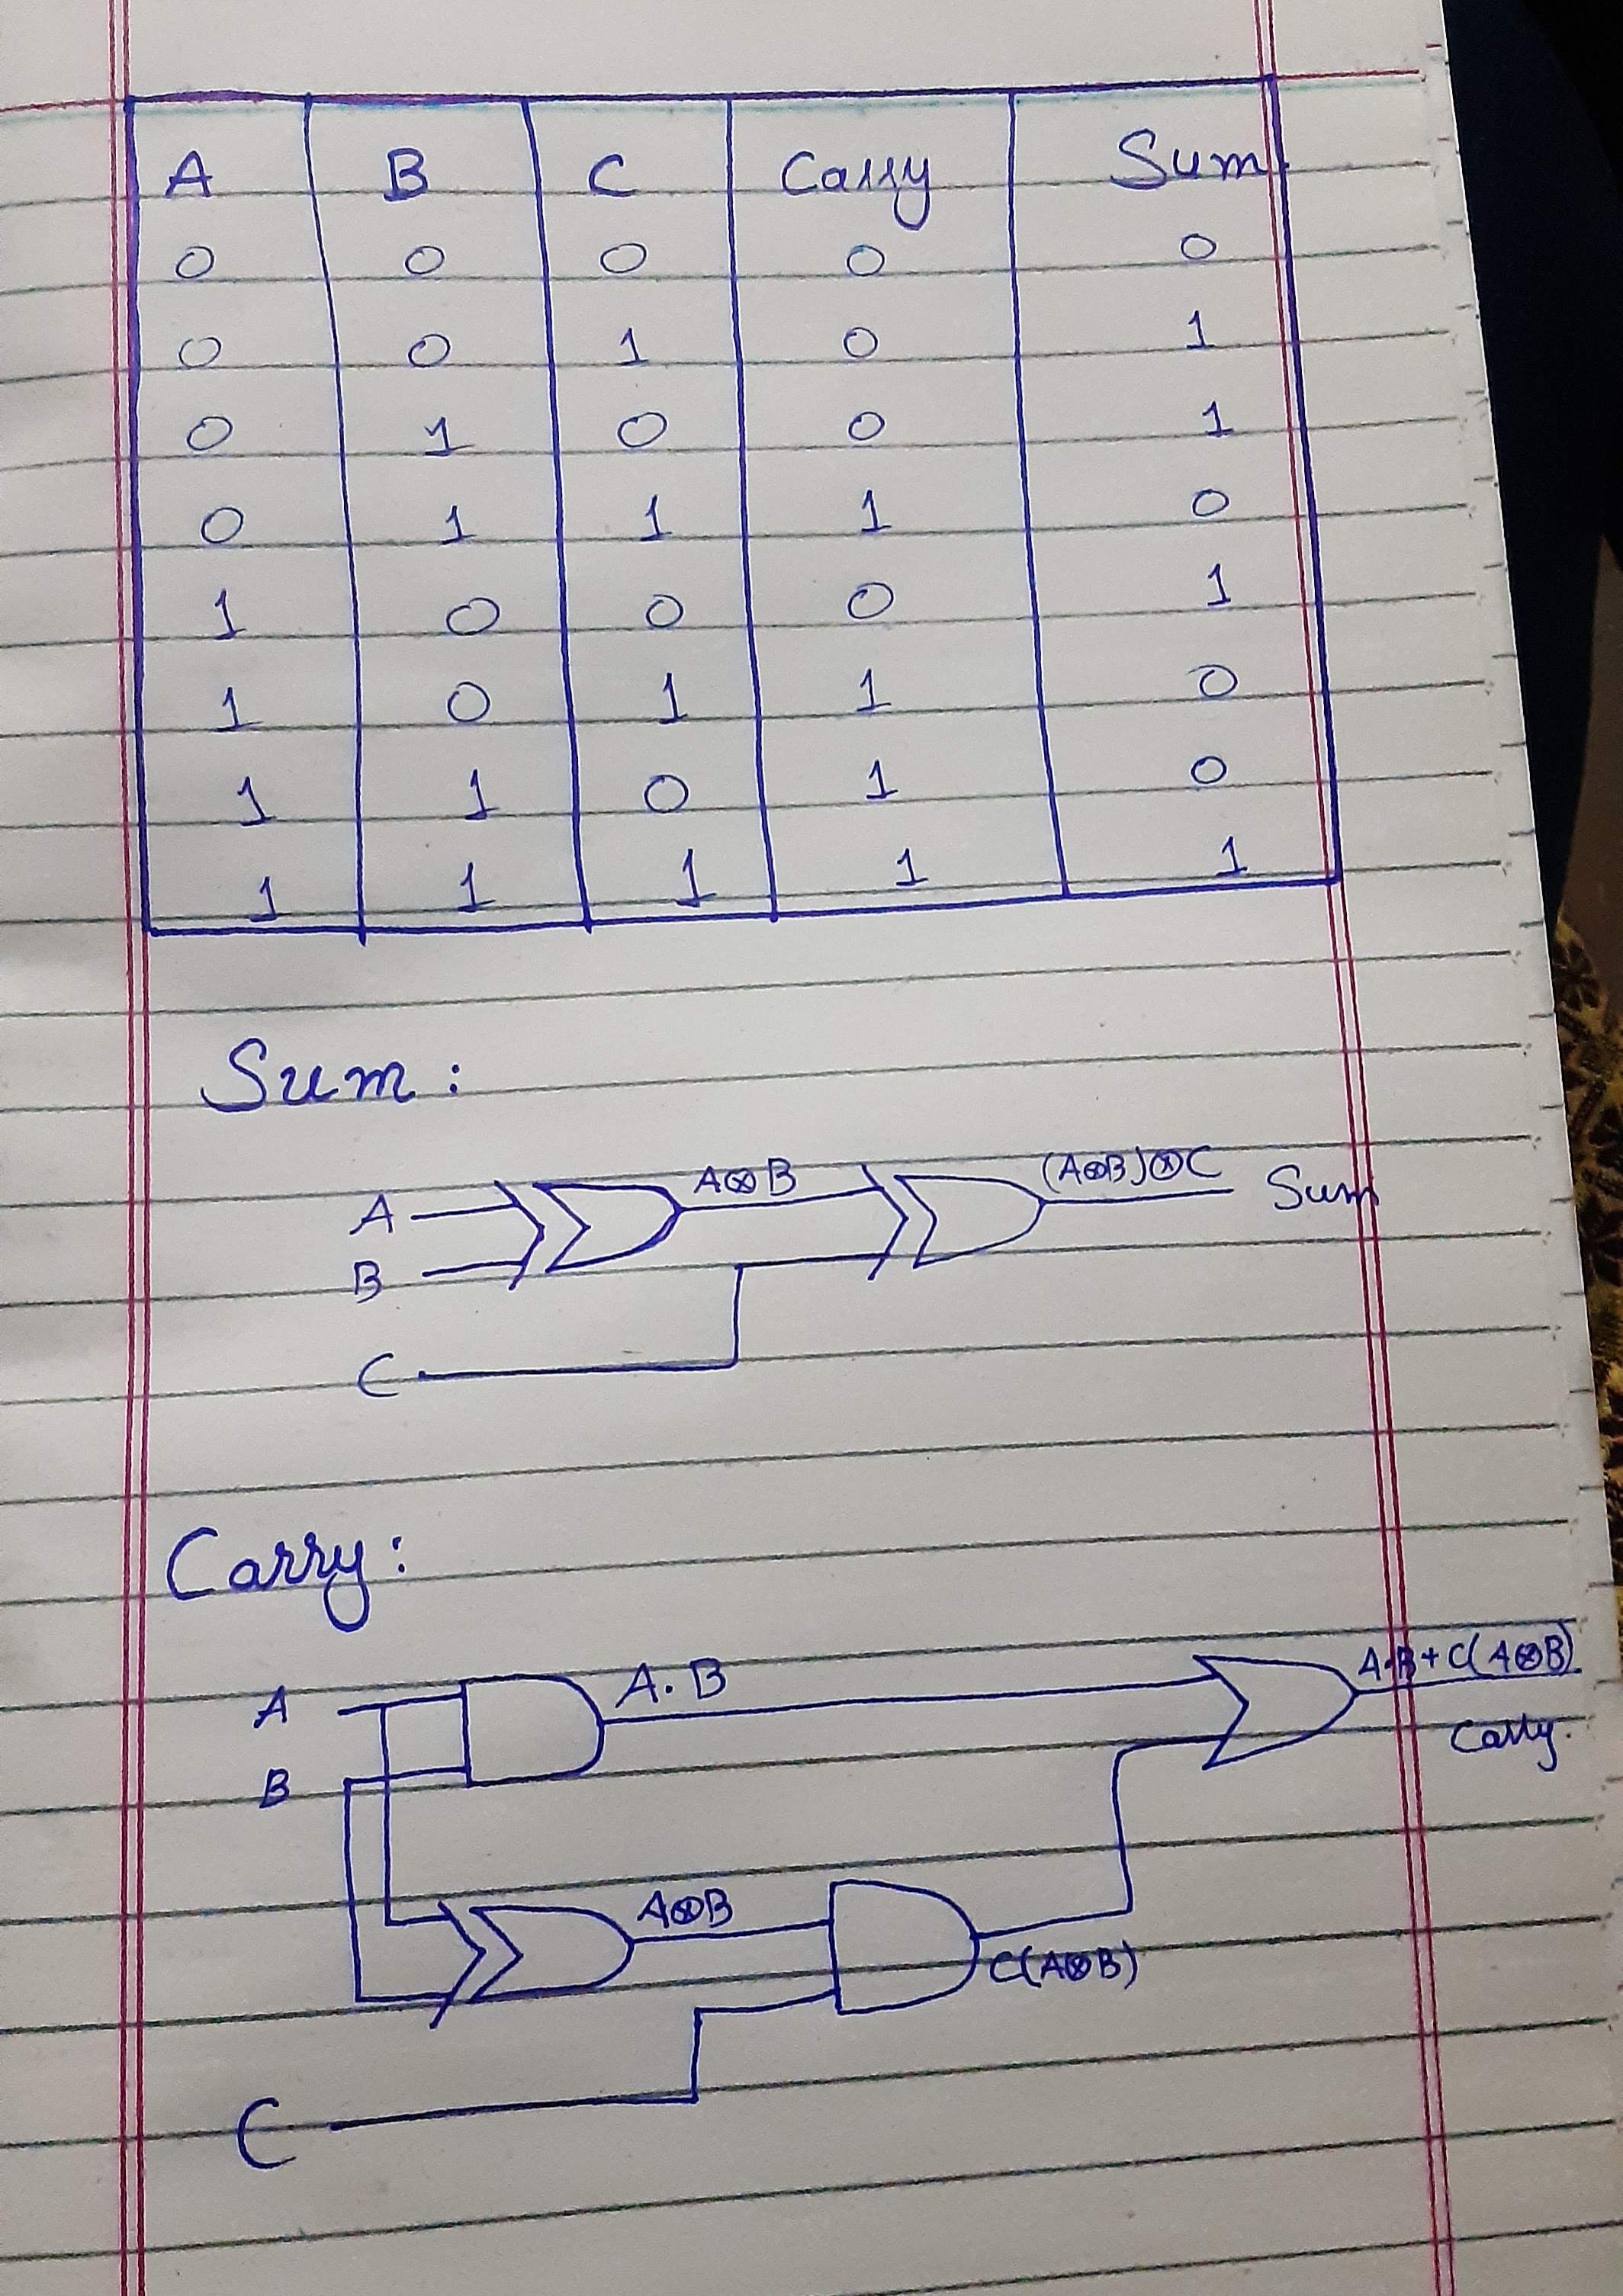 A B C Carry Sum
0 0 0 0 0
0 0 1 0 1
0 1 0 0 1
0 1 1 1 0
1 0 0 0 1
1 0 1 1 0
1 1 0 1 0
1 1 1 1 1
Sum:
A⊗B (A⊗B)⊗C Sum
A
B
C
Carry:
A A·B A·B+C(A⊗B)
B Carry.
A⊗B
C(A⊗B)
C